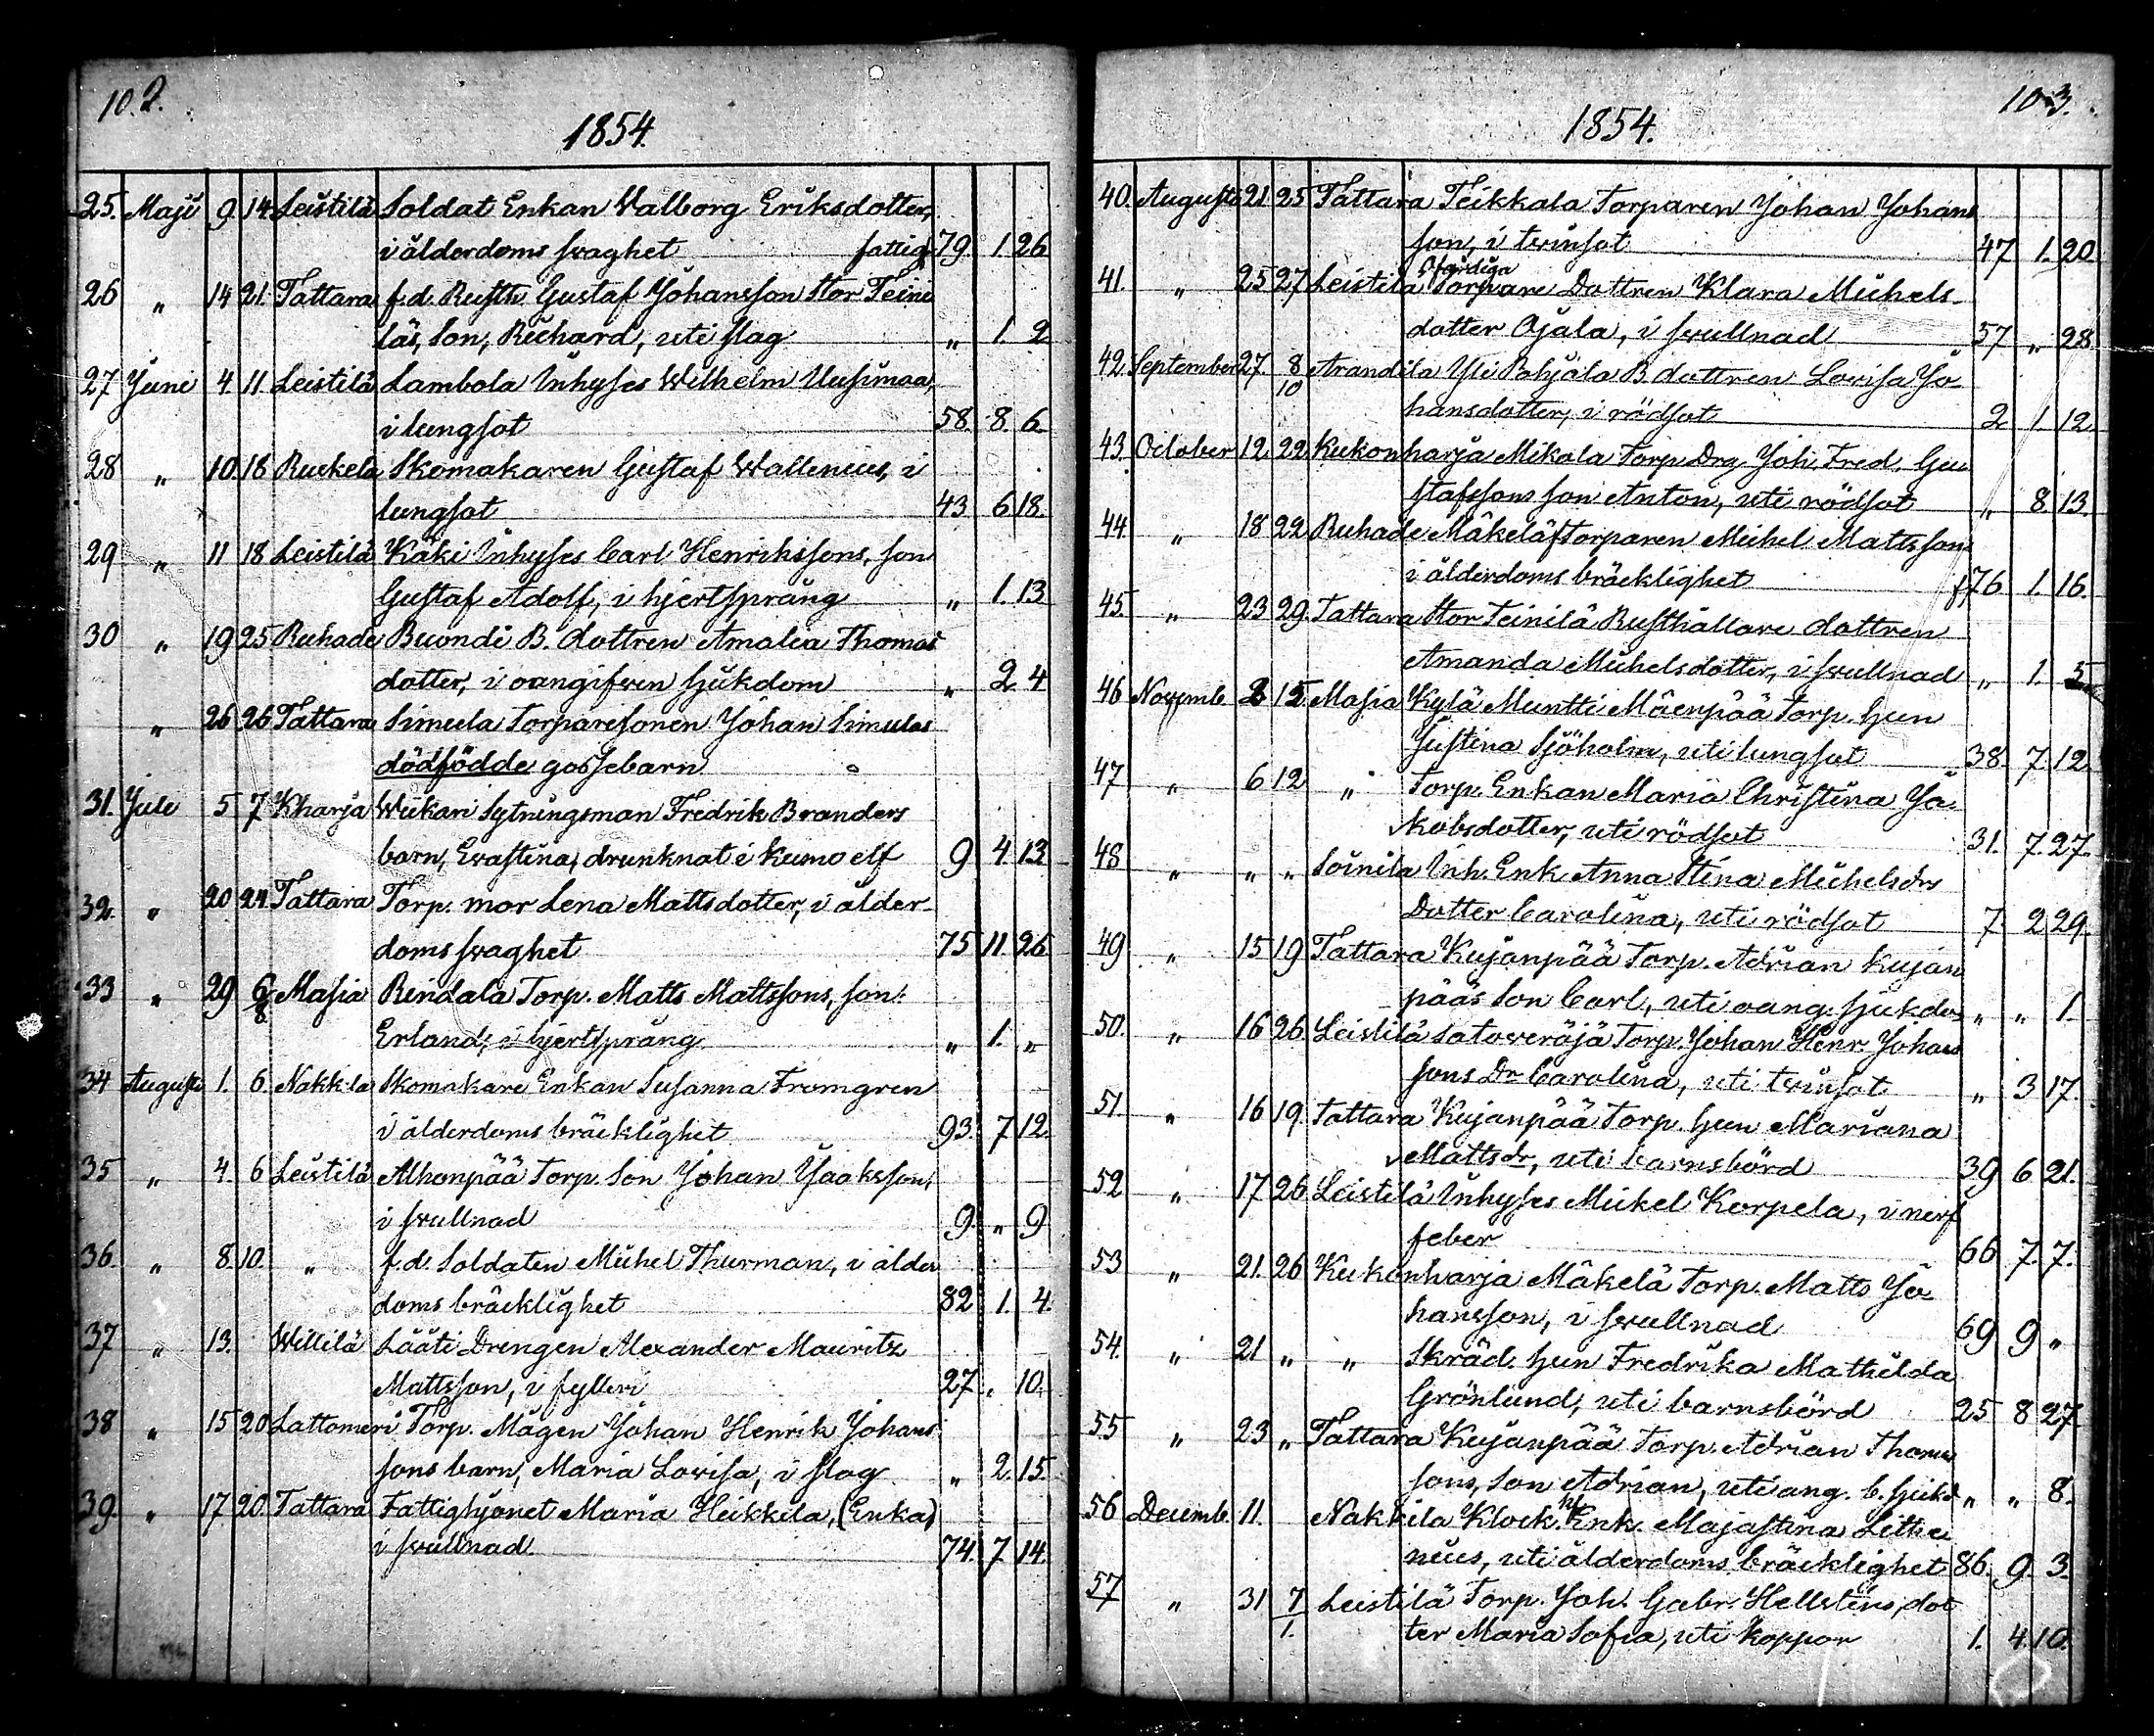 102.
1854.
25. Maji 9. 14. Leistilä Soldat Enkan Walborg Eriksdotter,
i ålderdoms swaghet fattig 79. 1. 26
26 " 14 21. Tattara f.d. Rusth. Gustaf Johansson Stor Teini
läs, Son, Richard, uti slag " 1. 2
27 Juni 4. 11. Leistilä Lambola Inhyses Wilhelm Uusimaa,
i lungsot 58. 8. 6.
28 " 10. 18 Ruskela Skomakaren Gustaf Wallenius, i
lungsot 43 6 18.
29 " 11 18 Leistilä Käki Inhyses Carl Henrikssons, son
Gustaf Adolf, i hjertsprång " 1. 13
30 " 19 25 Ruhade Buondi B. dottren Amalia Thomas
dotter, i oangifwen sjukdom " 2 4
" 26 26 Tattara Simula Torparesonen Johan Simulas
dödfödde gossebarn
31. Juli 5 7 Kharja Wiikari Sytningsman Fredrik Branders
barn, Evastina, drunknat i Kumo elf 9 4 13
32. " 20 24 Tattara Torp. mor Lena Mattsdotter, i ålder-
doms swaghet 75 11 26
33 " 29 6/8 Masia Rindala Torp. Matts Mattssons, son
Erland, i hjertsprång " 1. "
34 Augusti 1. 6. Nakkila Skomakare Enkan Susanna Fromgren
i ålderdoms bräcklighet 93. 7 12
35 " 4. 6 Leistilä Alhonpää Torp. Son Johan Isaksson,
i swullnad 9. " 9
36. " 8. 10. " f.d. Soldaten Michel Thurman, i ålder
doms bräcklighet 82 1. 4.
37 " 13. Willilä Lääti Drengen Alexander Mauritz
Mattsson, i fylleri 27. " 10.
38 " 15 20 Lattomeri Torp. Mågen Johan Henrik Johans
sons barn, Maria Lovisa, i slag " 2. 15.
39. " 17. 20. Tattara Fattighjonet Maria Heikkila, (Enka)
i swullnad 74. 7 14.
103.
1854.
40. Augusti 21 25 Tattara Teikkala Torparen Johan Johans
son, i twinsot 47 1. 20.
Ofärdiga
41. " 25 27 Leistilä Torpare Dottren Klara Michels-
dotter Ojala, i swullnad 57 " 28.
42 September 27. 8/10 Arandila Yli Pahjala B. dottren Lovisa Jo-
hansdotter, i rödsot 2 1. 12.
43. October 12. 22. Kukonharja Mikola Torp. Drg. Joh. Fred. Gu
stafssons son Anton, uti rödsot " 8 13.
44 " 18 22 Ruhade Mäkelä f Torparen Michel Mattsson
i ålderdoms bräcklighet f 76 1. 16.
45. " 23 29. Tattara Stor Teinilä Rusthållare dottren
Amanda Michelsdotter, i swullnad " 1. 5
46 Novemb. 8 15. Masia Kylä Muntti Mäenpää Torp. hu
Justina Sjöholm, uti lungsot 38. 7. 12.
47 " 6 12 " Torp. Enkan Maria Christina Ja-
kobsdotter, uti rödsot 31. 7. 27.
48 " " " Soinila Inh. Enk. Anna Stina Michelsdrs
Dotter Carolina, uti rödsot 7. 2 29.
49 " 15 19 Tattara Kujanpää Torp. Adrian Kujan
pääs Son Carl, uti oang. sjukdom " " 1.
50. " 16 26. Leistilä Satoweräjä Torp. Johan Henr. Johans
sons Dr Carolina, uti twinsot " 3 17.
51 " 16 19. Tattara Kujanpää Torp. hu Mariana
Mattsdr, uti barnsbörd 39 6 21.
52 " 17 26 Leistilä Inhyses Mickel Korpela, i nerf
feber 66 7. 7.
53 " 21. 26 Kukonharja Mäkelä Torp. Matts Jo-
hansson, i swullnad 69 9 "
54. " 21 " " Skräd. hu Fredrika Mathilda
Grönlund, uti barnsbörd 25 8 27
55 " 23 " Tattara Kujanpää Torp. Adrian Thomas
sons, Son Adrian, uti ang. b. sjukd. " " 8.
56 Decemb. 11. Nakkila Klock. Enk. Majastina Litte
nius, uti ålderdoms bräcklighet 86. 9. 3.
57 " 31 7/1. Leistilä Torp. Joh. Gabr. Hellstens, dot
ter Maria Sofia, uti koppor 1. 4. 10.